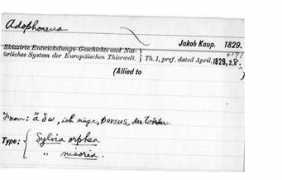 Adophoneus
Jakob Kaup. 1829.
Skizzirte Entwickelungs-Geschichte und Nat-
ürliches System der Europäischen Thierwelt. Th. I, pref. dated April, 1829, 28.
(Allied to )
ich
Type: Sylvia orphea
" nisoria.